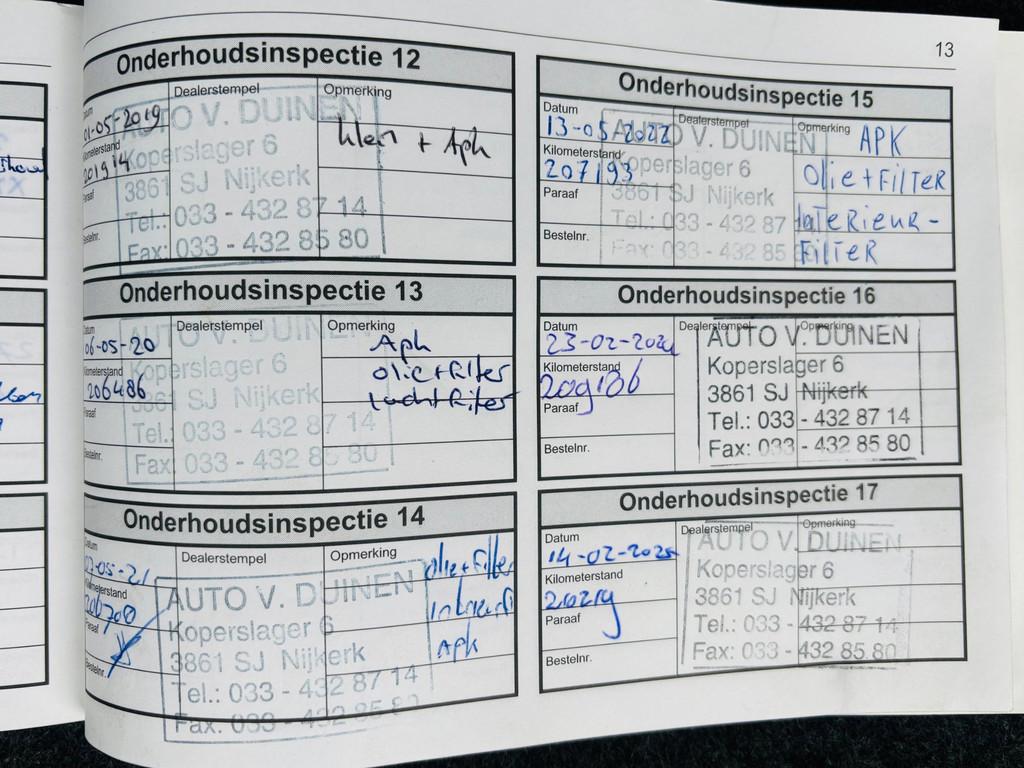 13
Onderhoudsinspectie 12
Datum Dealerstempel Opmerking
01-05-2019
Kilometerstand
Paraaf
Bestelnr.
klein + Apk
AUTO V. DUINEN
Koperslager 6
3861 SJ Nijkerk
Tel.: 033 - 432 87 14
Fax: 033 - 432 85 80
Onderhoudsinspectie 13
Datum Dealerstempel Opmerking
06-05-20
Kilometerstand
206486
Paraaf
Bestelnr.
Apk
olie+filter
luchtfilter
AUTO V. DUINEN
Koperslager 6
3861 SJ Nijkerk
Tel.: 033 - 432 87 14
Fax: 033 - 432 85 80
Onderhoudsinspectie 14
Datum Dealerstempel Opmerking
05-21
Kilometerstand
206700
Paraaf
Bestelnr.
olie+filter
Apk
AUTO V. DUINEN
Koperslager 6
3861 SJ Nijkerk
Tel.: 033 - 432 87 14
Fax: 033 - 432 85 80
Onderhoudsinspectie 15
Datum Dealerstempel Opmerking
13-05-2022
Kilometerstand
207193
Paraaf
Bestelnr.
APK
Olie+FilTeR
InTeRieuR-
FilTeR
AUTO V. DUINEN
Koperslager 6
3861 SJ Nijkerk
Tel.: 033 - 432 87
Fax: 033 - 432 85
Onderhoudsinspectie 16
Datum Dealerstempel Opmerking
23-02-2024
Kilometerstand
209186
Paraaf
Bestelnr.
AUTO V. DUINEN
Koperslager 6
3861 SJ Nijkerk
Tel.: 033 - 432 87 14
Fax: 033 - 432 85 80
Onderhoudsinspectie 17
Datum Dealerstempel Opmerking
14-02-2025
Kilometerstand
210219
Paraaf
Bestelnr.
AUTO V. DUINEN
Koperslager 6
3861 SJ Nijkerk
Tel.: 033 - 432 87 14
Fax: 033 - 432 85 80